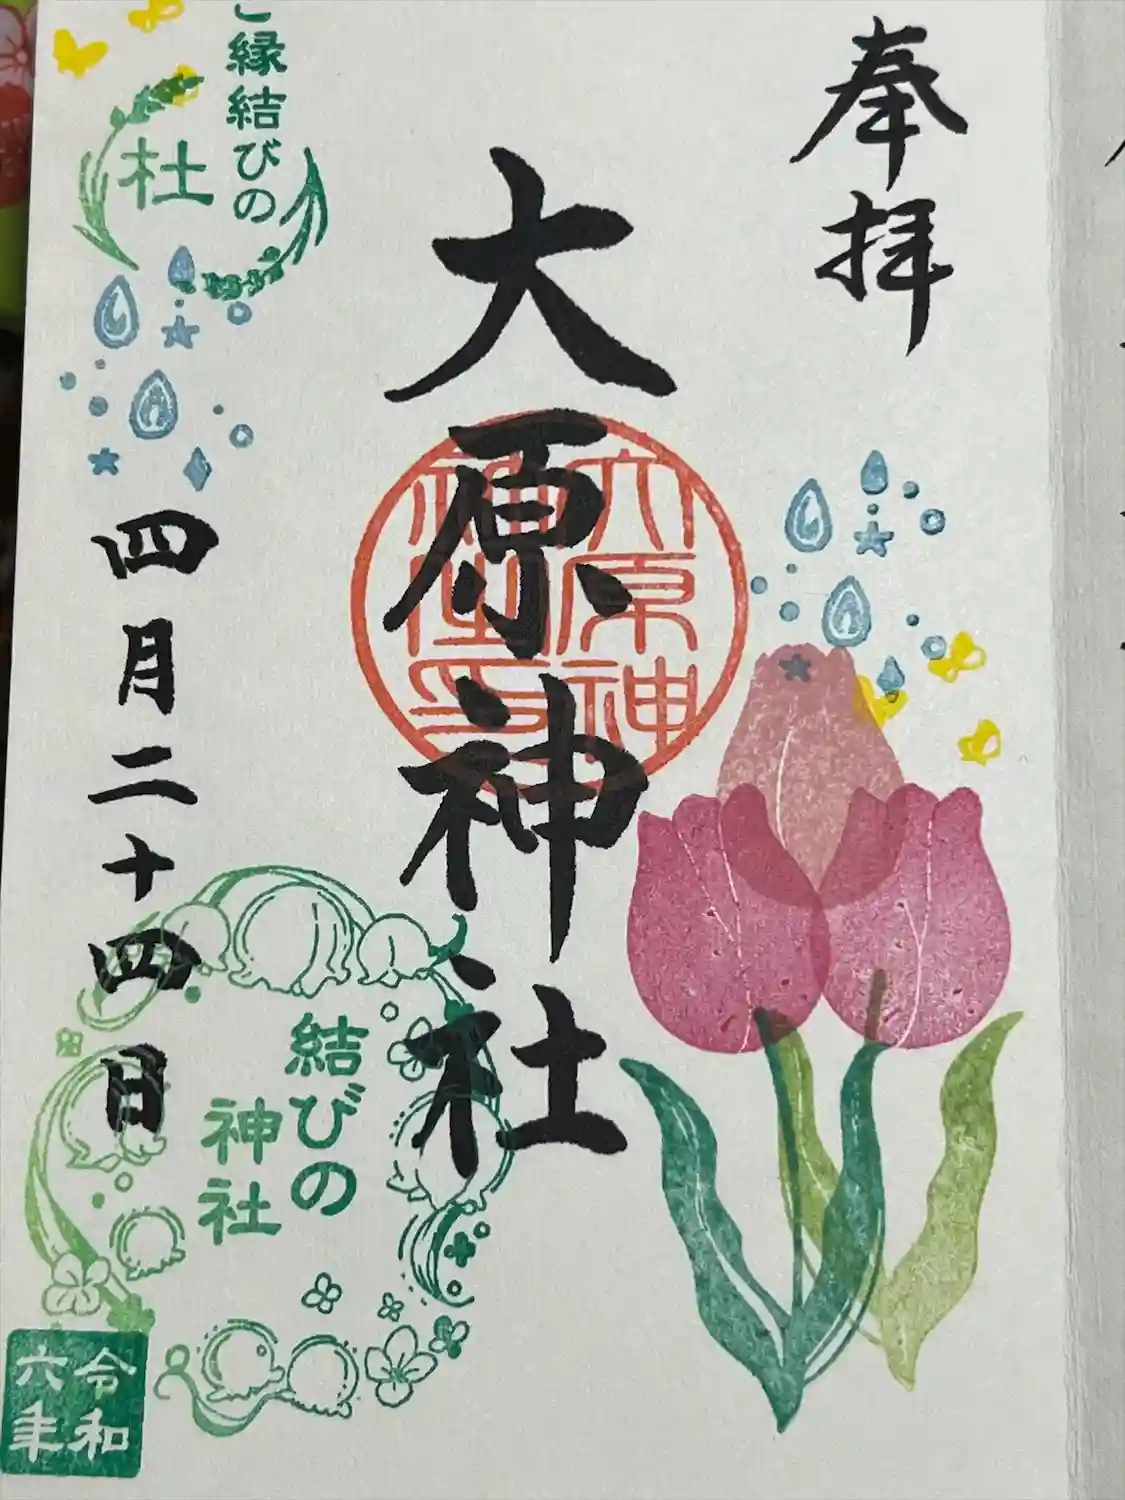 奉拝
大原神社
大原神
社印
ご縁結びの
杜
四月二十四日
結びの
神社
令和
六年